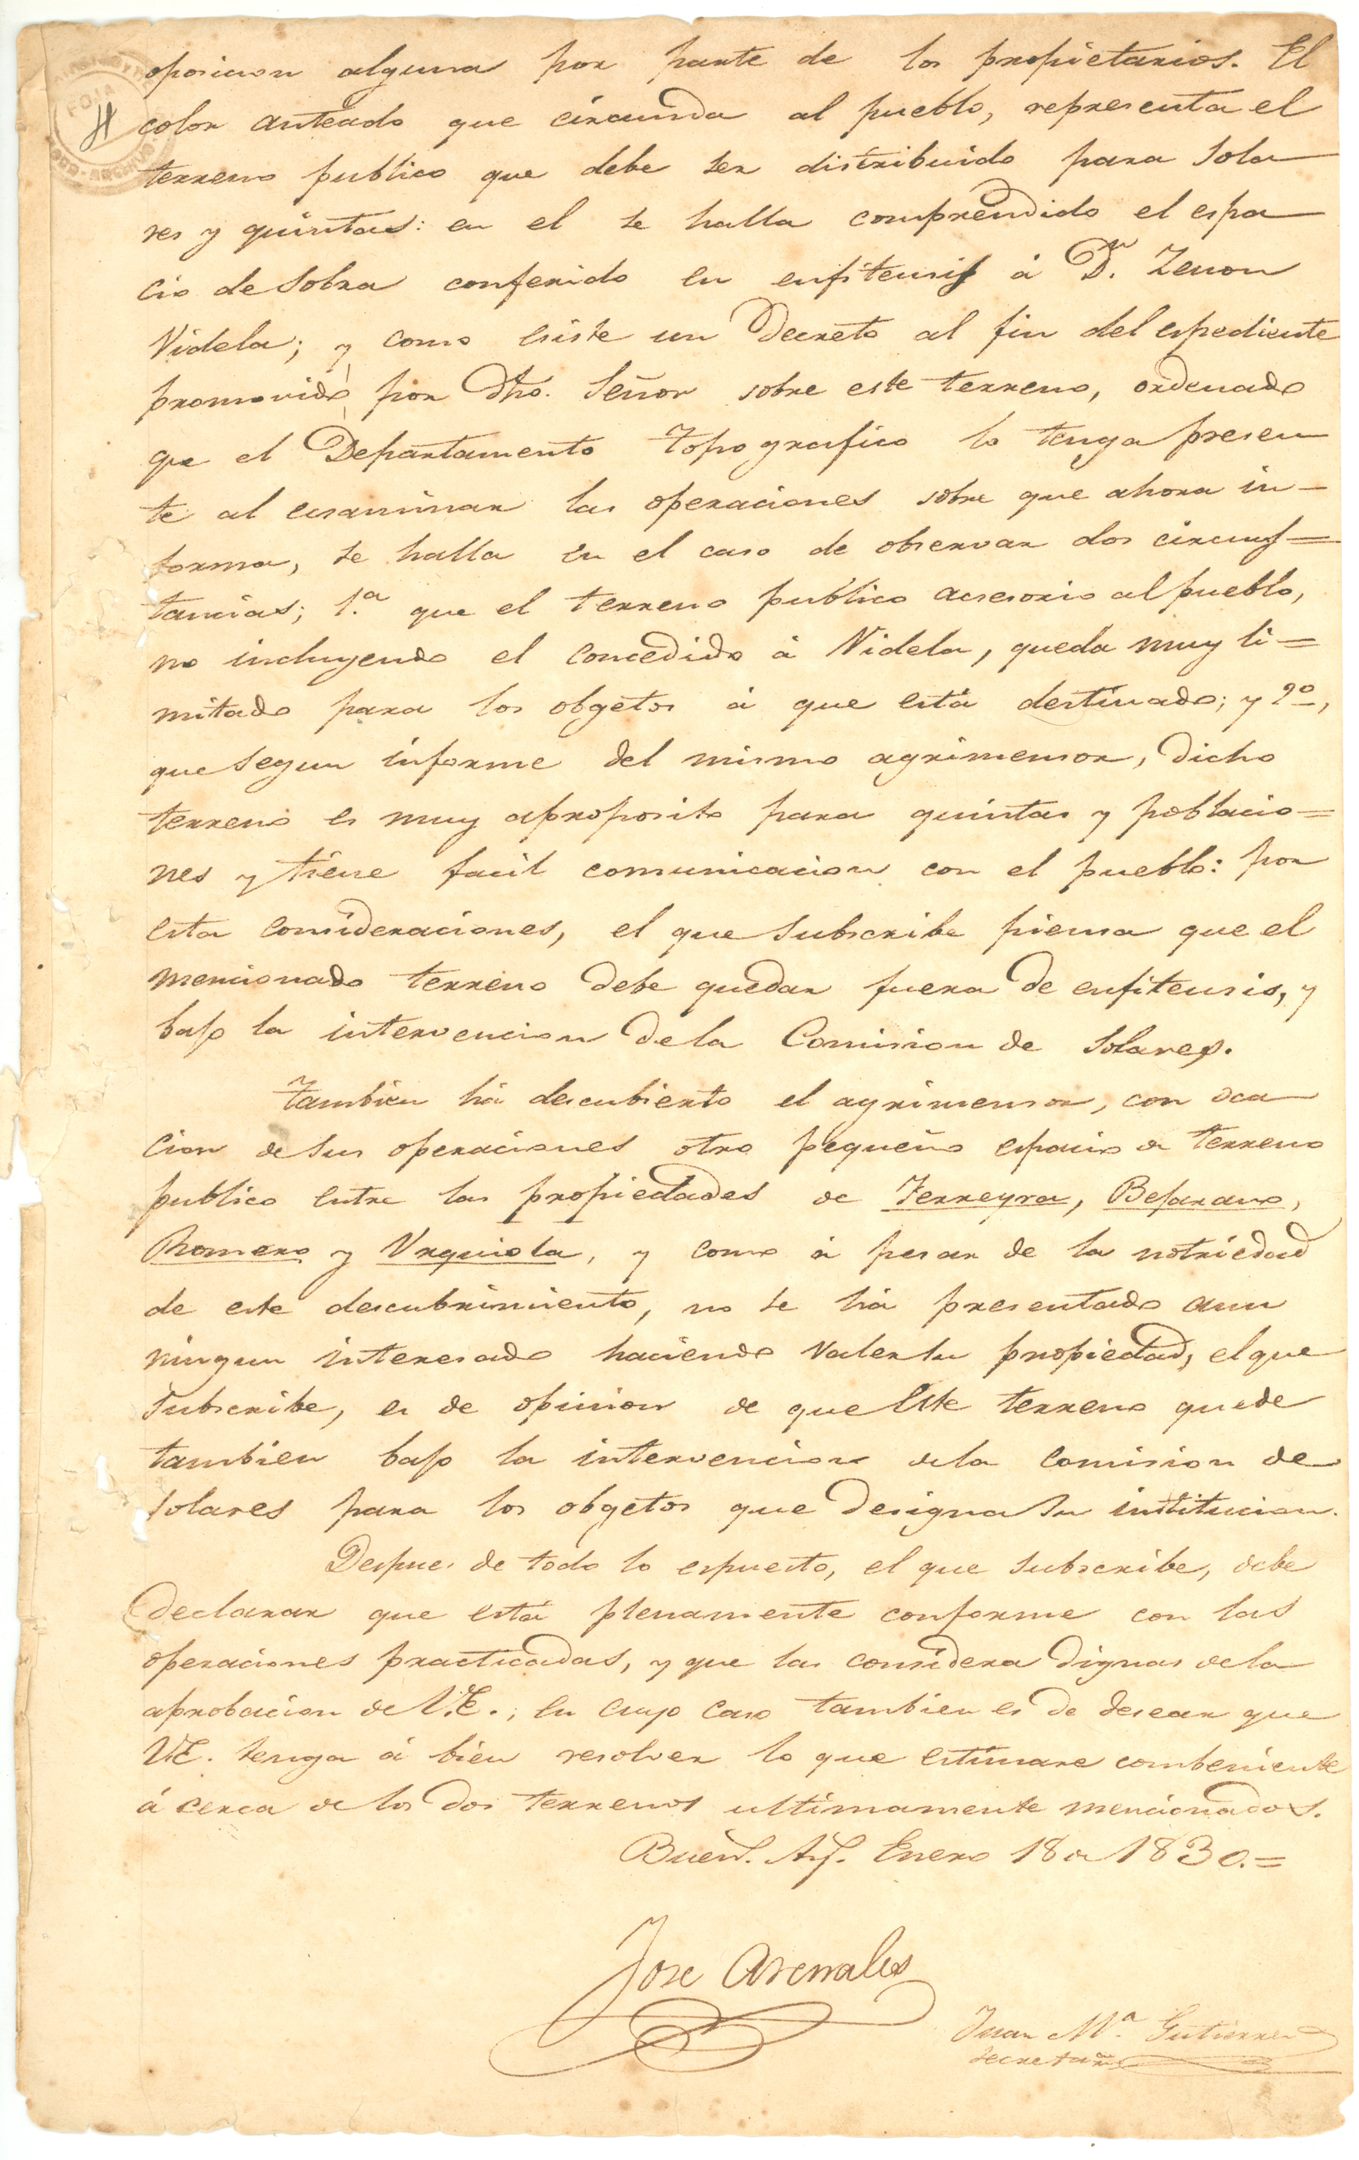 oposicion alguna por parte de los propietarios. El
color anteado que circunda al pueblo, representa el
terreno publico que debe ser distribuido para sola
res y quintas: en el se halla comprendido el espa
cio de sobra conferido en enfiteusis á Dn. Zenon
Videla; y como esiste un Decreto al fin del espediente
promovido por dho. Señor sobre este terreno, ordenado
que el Departamento Topografico lo tenga presen
te al ecsaminar las operaciones sobre que ahora in-
forma, se halla en el caso de observar dos circuns=
tancias; 1.a que el terreno publico acesorio al pueblo,
no incluyendo el concedido á Videla, queda muy li=
mitado para los obgetos á que está destinado; y 2o,
que segun informe del mismo agrimensor, dicho
terreno es muy aproposito para quintas y poblacio=
nes y tiene facil comunicacion con el pueblo: por
esta consideraciones, el que subscribe piensa que el
mencionado terreno debe quedar fuera de enfiteusis, y
bajo la intervencion de la Comision de Solares.
Tambien há descubierto el agrimensor, con oca
cion de sus operaciones otro pequeño espacio de terreno
publico entre las propiedades de Ferreyra, Bejarano,
Romero y Urquiola, y como á pesar de la notriedad
de este descubrimiento, no se há presentado aun
ningun interesado haciendo valer su propiedad, el que
subscribe, es de opinion de que este terreno quede
tambien bajo la intervencion de la Comision de
solares para los obgetos que designa su institucion.
Despues de todo lo espuesto, el que subscribe, debe
declarar que está plenamente conforme con las
operaciones practicadas, y que las considera dignas de la
aprobacion de V.E.; en cuyo caso tambien es de desear que
V.E. tenga á bien resolver lo que estimare combeniente
á cerca de los dos terrenos ultimamente mencionados.
Buens. Ays. Enero 18 de 1830.=
Jose Arenales
Juan Ma. Gutierrez
secretario
FOJA